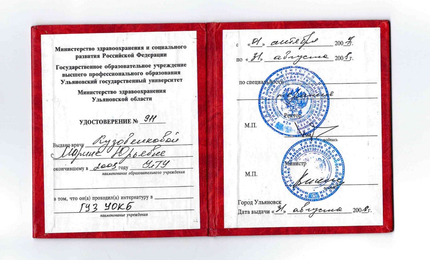 Министерство здравоохранения и социального
развития Российской Федерации
Государственное образовательное учреждение
высшего профессионального образования
Ульяновский государственный университет
Министерство здравоохранения
Ульяновской области
УДОСТОВЕРЕНИЕ №
Выдано врачу Кузовенковой
Марине Юрьевне
окончившему в 2003 УлГУ
наименование образовательного учреждения
в том, что он(а) проходил(а) интернатуру в
ГУЗ УОКБ
наименование учреждения
с
по 31 августа
по специальности
Ректор
М.П.
Министр
М.П.
Город Ульяновск
Дата выдачи 31 августа